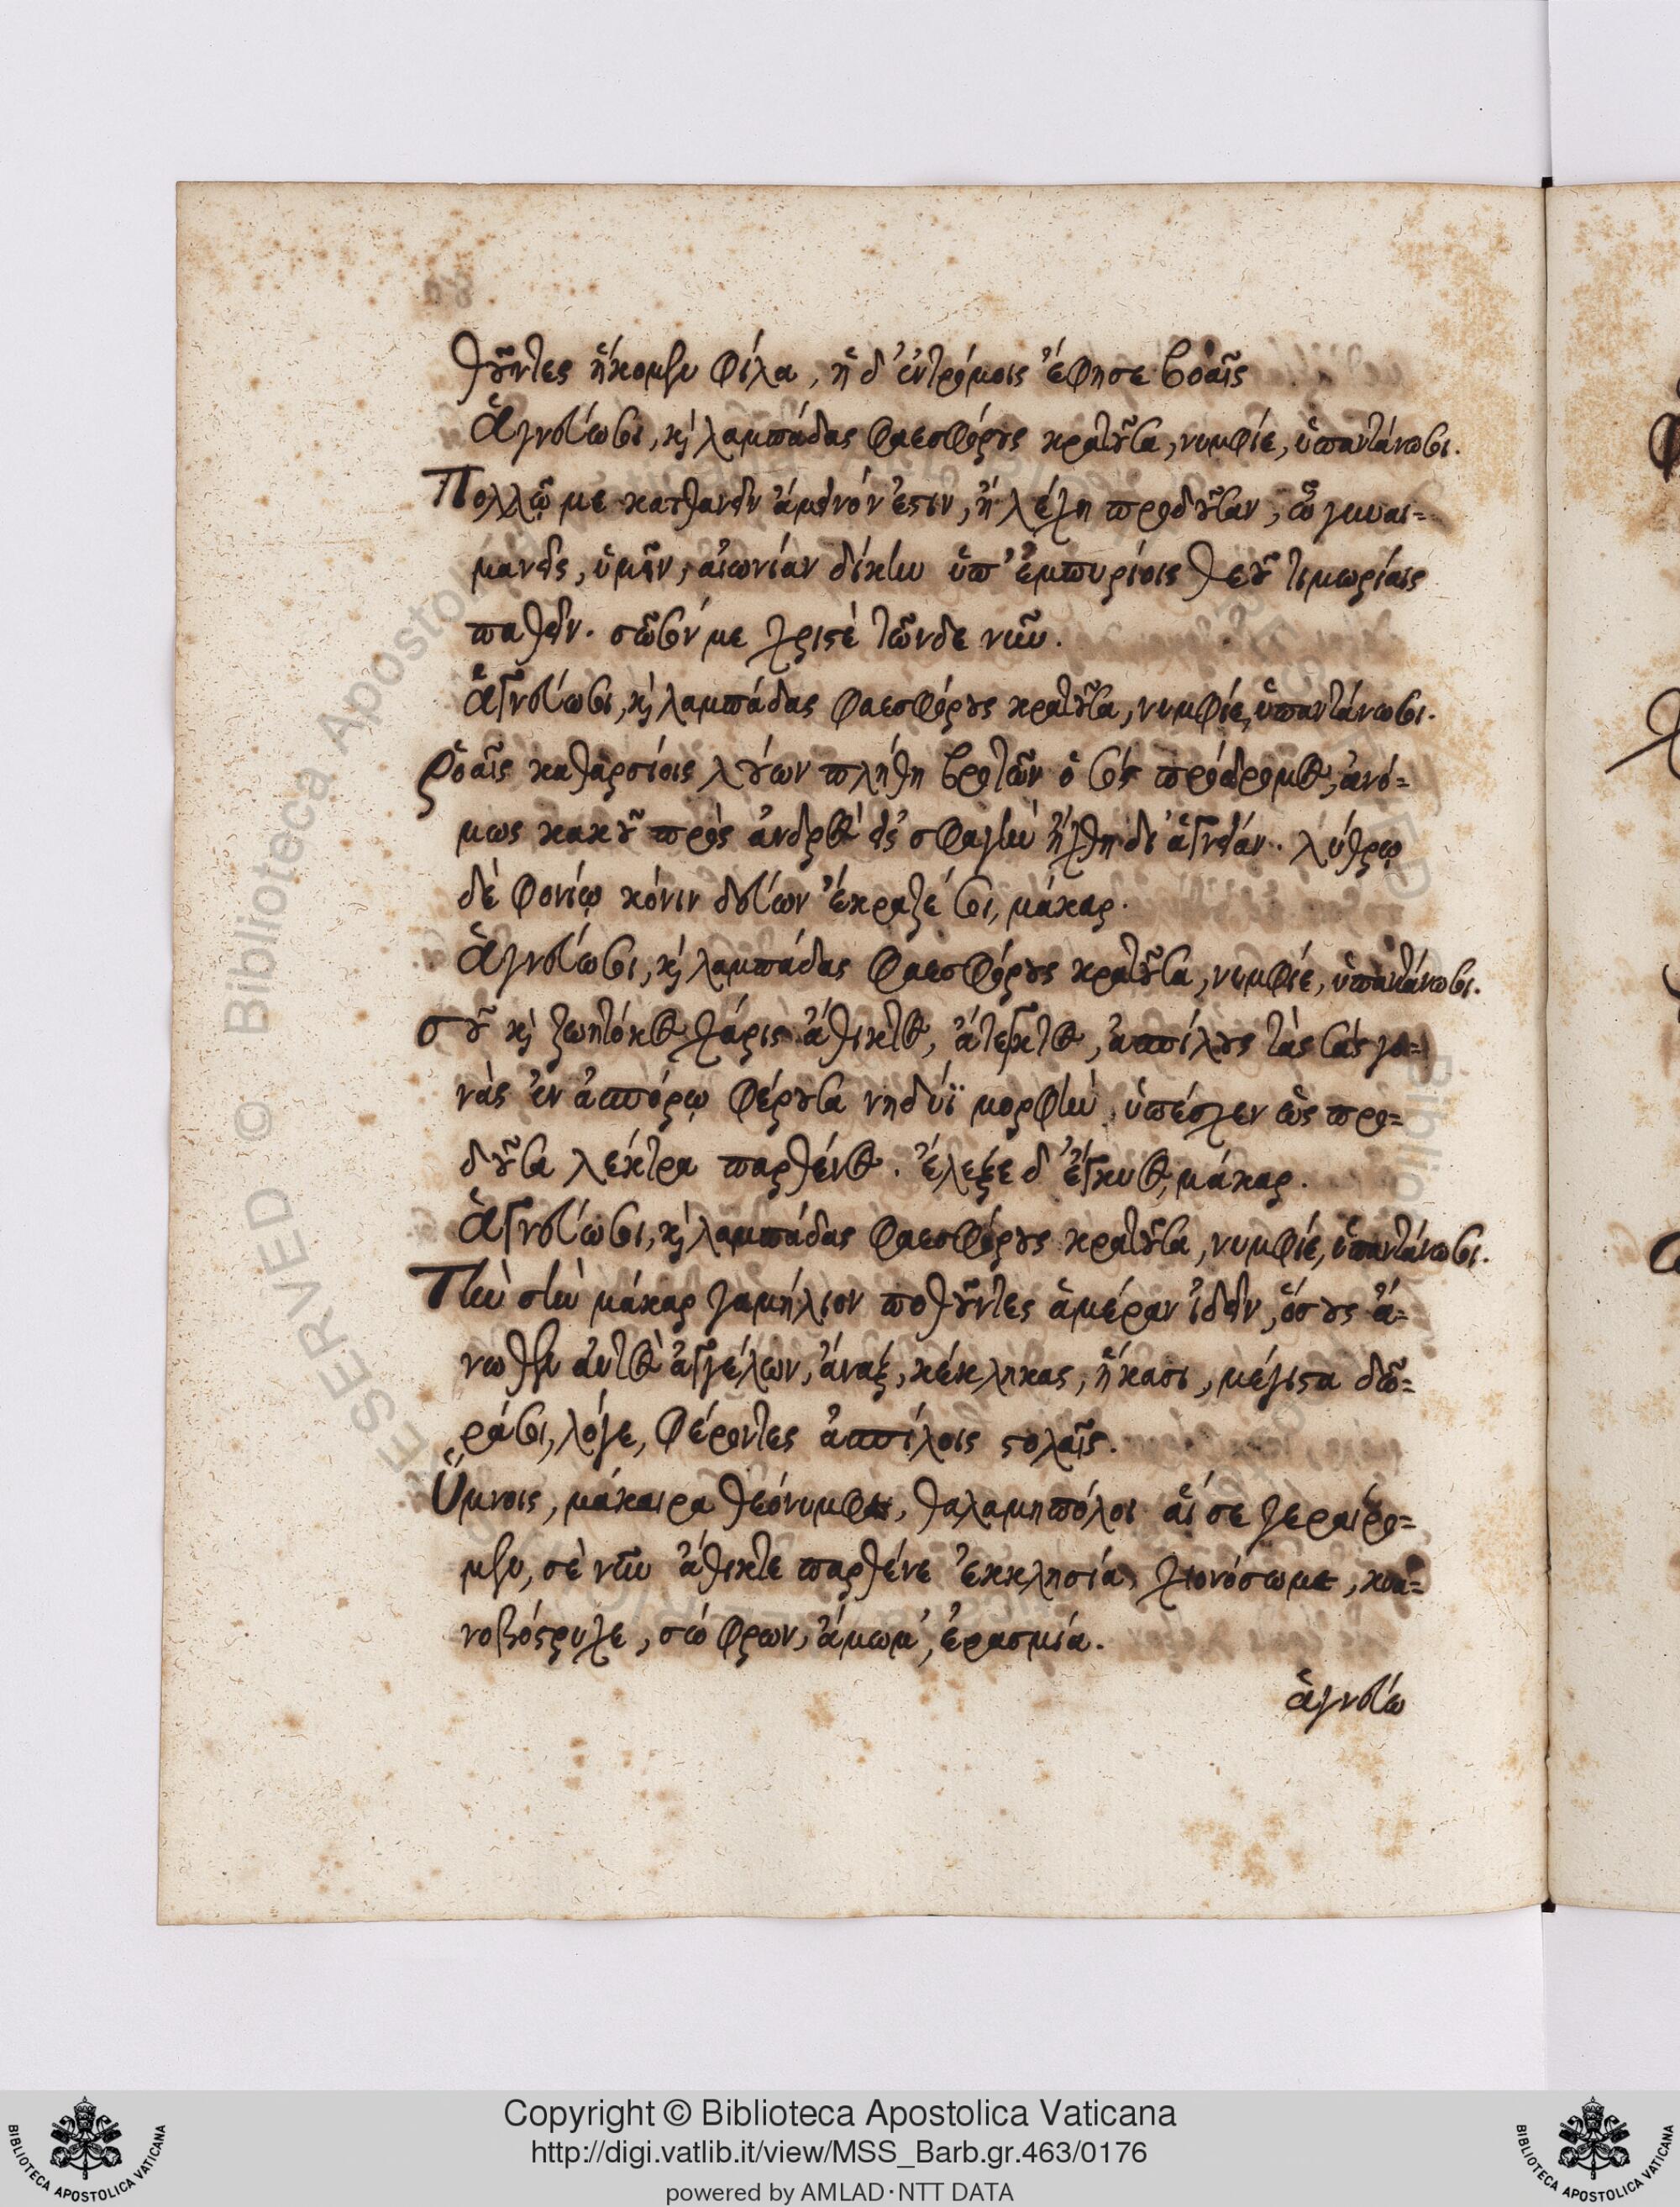 θοῦντες ἥκομεν φίλα, ἡ δ' ἐντρόμοις ἔφησε βοαῖς
Ἁγνεύω σοι, κὶ λαμπάδας φαεσφόρους κρατοῦσα, νυμφίε, ὑπαντάνω σοι.
Πολλῷ με κατθανεῖν ἀμεινόν ἐστιν, ἢ λέχη προδοῦσαν, ὦ γυναι-
μανεῖς, ὑμῖν, αἰωνίαν δίκην ὑπ' ἐμπυρίοις θεοῦ τιμωρίαις
παθεῖν. σῶσόν με χριστὲ τῶνδε νῦν.
Ἁγνεύω σοι, κὶ λαμπάδας φαεσφόρους κρατοῦσα, νυμφίε, ὑπαντάνω σοι.
ῥοαῖς καθαρσίοις λούων πλήθη βροτῶν ὁ σὸς πρόδρομος, ἀνό-
μως κακοῦ πρὸς ἀνδρὸς εἰς σφαγὴν ἤχθη δι' ἁγνείαν. λύθρῳ
δὲ φονίῳ κόνιν δεύων ἔκραζέ σοι, μάκαρ.
Ἁγνεύω σοι, κὶ λαμπάδας φαεσφόρους κρατοῦσα, νυμφίε, ὑπαντάνω σοι.
σοῦ κὶ ζωητόκος χάρις ἄθικτος, ἄτεγκτος, ἀσπίλους τὰς σὰς γο-
νὰς ἐν ἀσπόρῳ φέρουσα νηδύϊ μορφὴν, ὑπέσχεν ὡς προ-
δοῦσα λέκτρα παρθένος. ἔλεξε δ' ἔγκυος, μάκαρ.
Ἁγνεύω σοι, κὶ λαμπάδας φαεσφόρους κρατοῦσα, νυμφίε, ὑπαντάνω σοι.
Τὴν σὴν μάκαρ γαμήλιον ποθοῦντες ἁμέραν ἰδεῖν, ὅσους ἄ-
νωθεν αὐτὸς ἀγγέλων, ἄναξ, κέκληκας, ἥκασι, μέγιστα δῶ-
ρά σοι, λόγε, φέροντες ἀσπίλοις στολαῖς.
Ὕμνοις, μάκαιρα θεόνυμφε, θαλαμηπόλοι αἵ σε γεραίρο-
μεν, σὲ νῦν ἄθικτε παρθένε ἐκκλησία, χιονόσωμε, κυα-
νοβόστρυχε, σώφρων, ἄμωμ', ἐρασμία.
ἁγνεύω
Copyright © Biblioteca Apostolica Vaticana
http://digi.vatlib.it/view/MSS_Barb.gr.463/0176
powered by AMLAD·NTT DATA
BIBLIOTECA APOSTOLICA VATICANA
BIBLIOTECA APOSTOLICA VATICANA